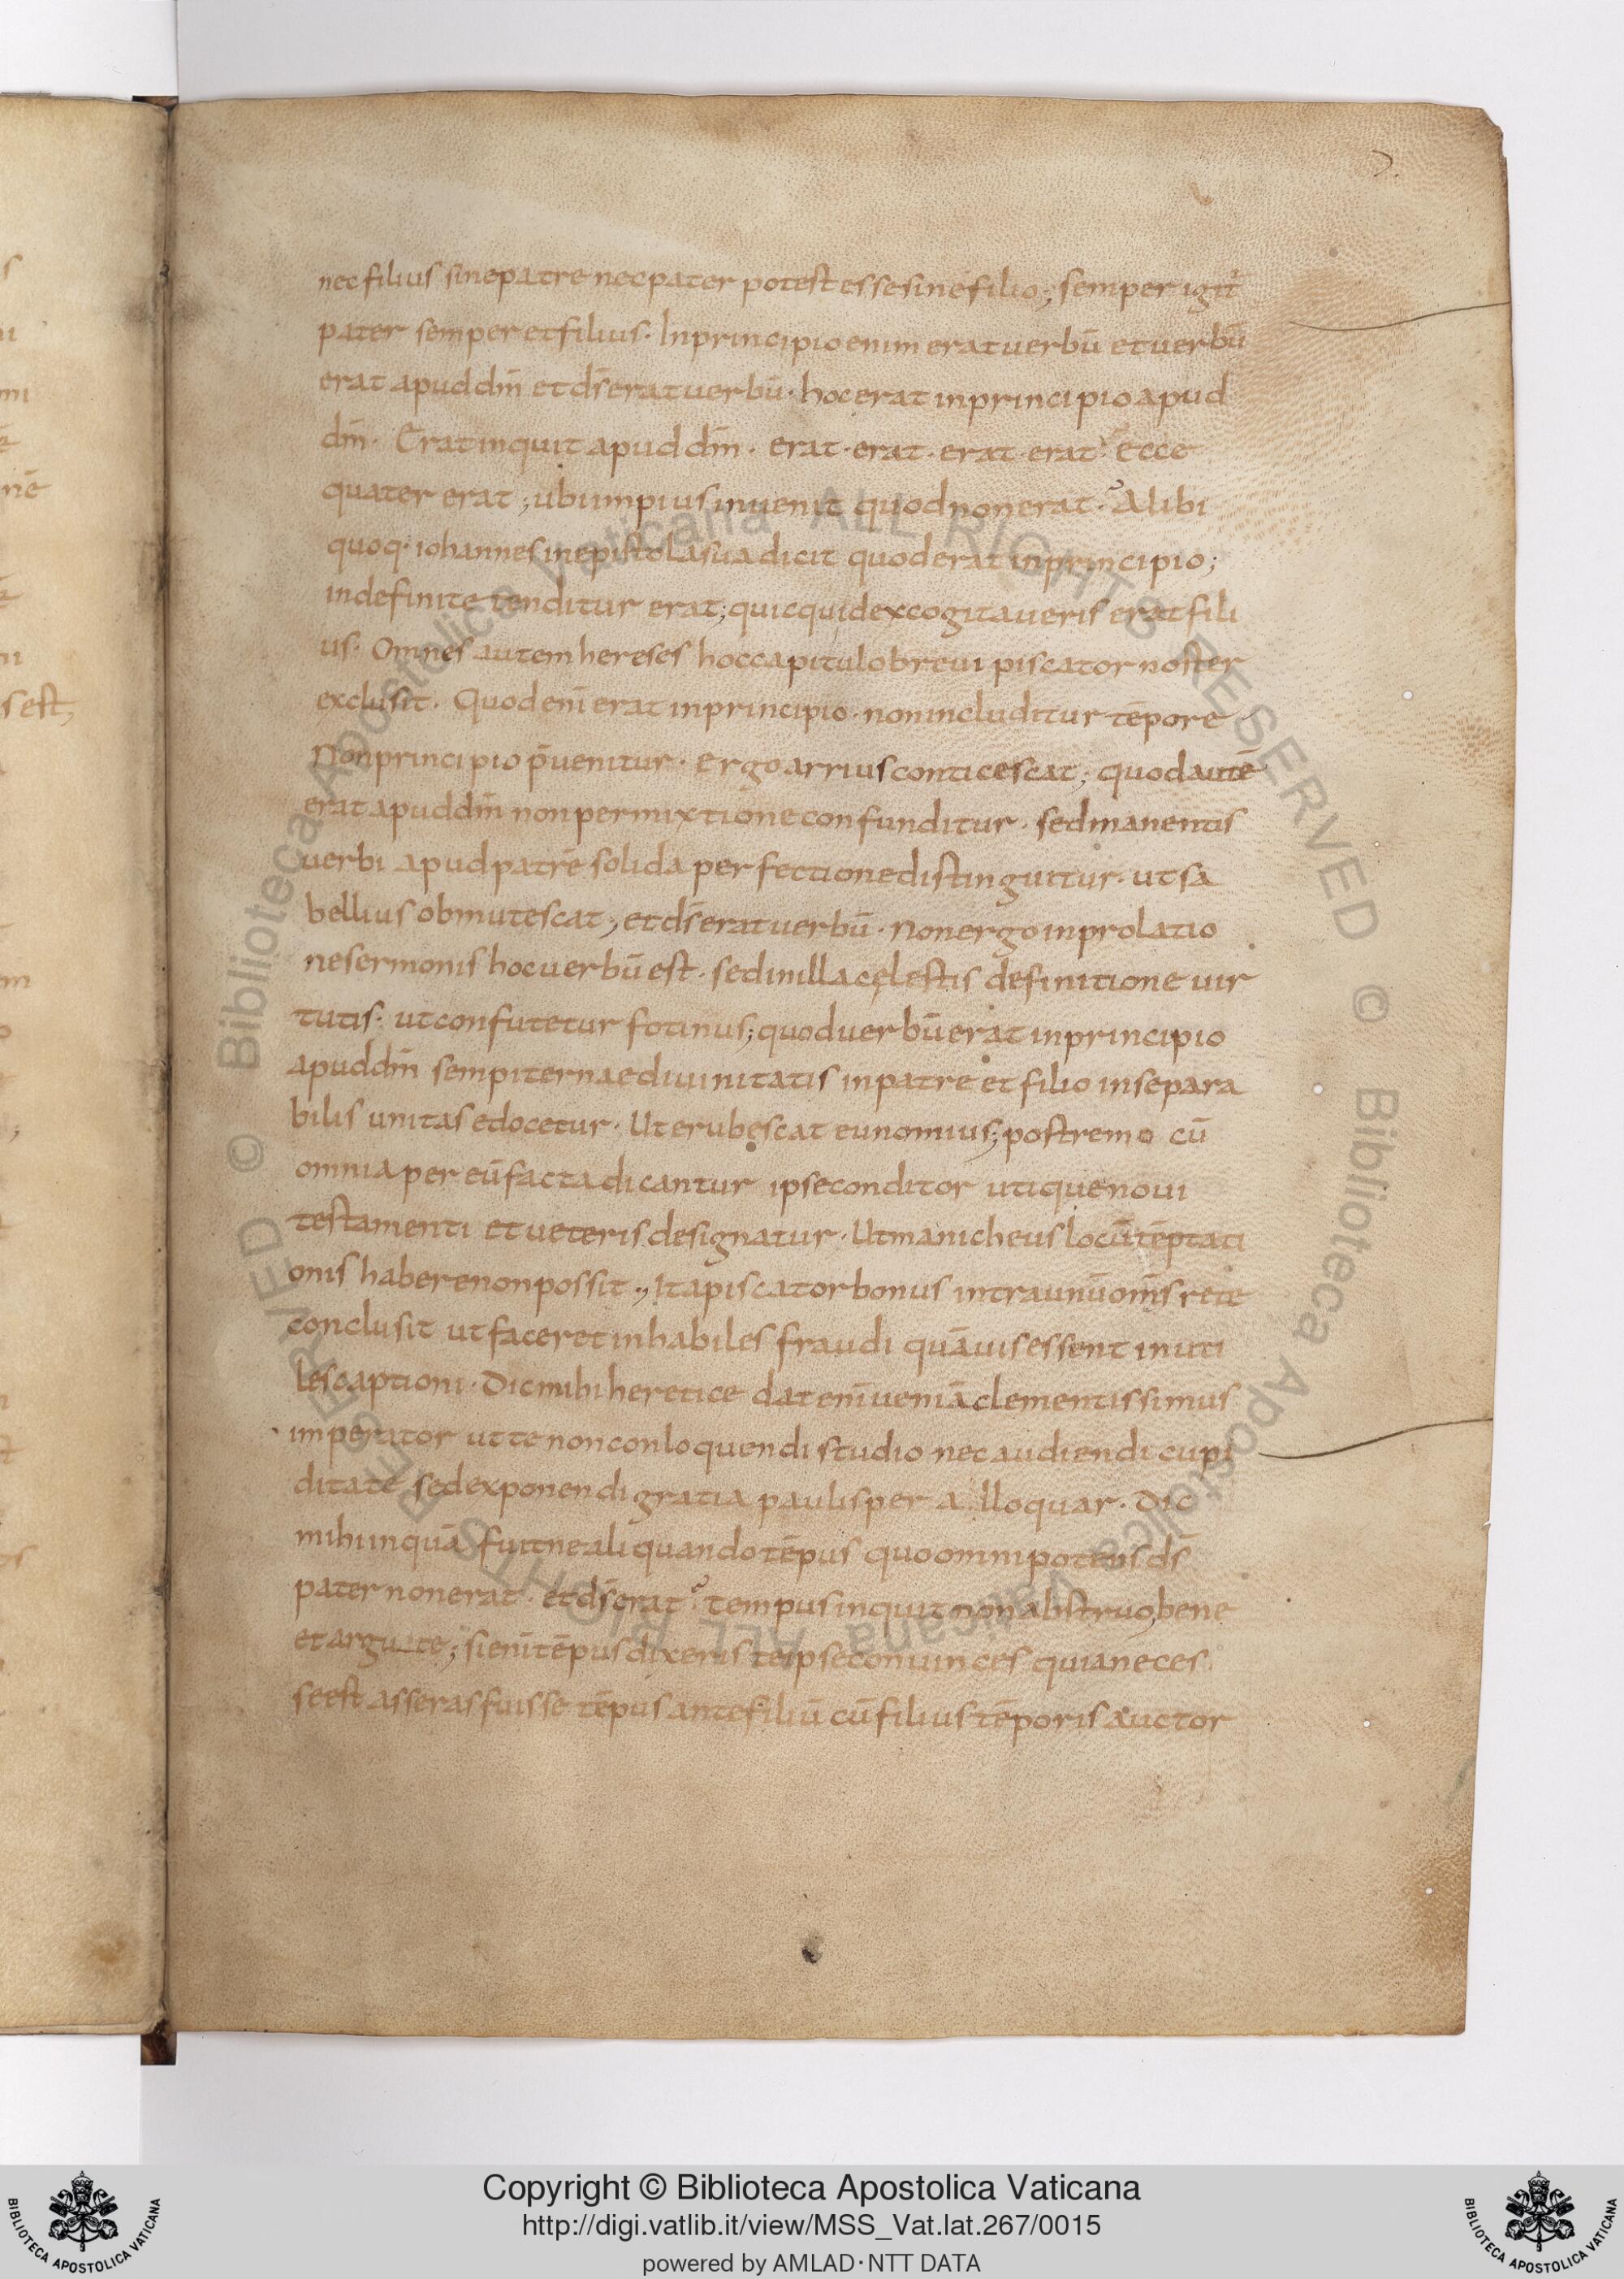 nec filius sine patre nec pater potest esse sine filio; semper igit̄
pater semper et filius · In principio enim erat uerbū et uerbū
erat apud dm̄ et ds̄ erat uerbū · hoc erat in principio apud
dm̄ · Erat inquit apud dm̄ · erat · erat · erat · erat · Ecce
quater erat ; ubi impius inuenit quod non erat · Alibi
quoq· iohannes in epistola sua dicit quod erat in principio ;
indefinite tenditur erat ; quicquid excogitaueris erat fili
us · Omnes autem hereses hoc capitulo breui piscator noster
exclusit · Quod eni̅ erat in principio · non includitur tēpore
Non principio p̄uenitur · Ergo arrius conticescat ; quod autē
erat apud dm̄ non permixtione confunditur · sed manentis
uerbi apud patrē solida perfectione distinguitur · ut sa
bellius obmutescat ; et ds̄ erat uerbū · Non ergo in prolatio
ne sermonis hoc uerbū est · sed in illa cęlestis definitione uir
tutis · ut confutetur fotinus ; quod uerbū erat in principio
apud dm̄ sempiternae diuinitatis in patre et filio insepara
bilis unitas edocetur · Ut erubescat eunomius ; postremo cū
omnia per eū facta dicantur ipse conditor utique noui
testamenti et ueteris designatur · Ut manicheus locū tēptati
onis habere non possit ., Ita piscator bonus intra unū om̄s rete
conclusit ut faceret inhabiles fraudi quāuis essent inuti
les captioni · Dic mihi heretice dat eni̅ ueniā clementissimus
imperator ut te non conloquendi studio nec audiendi cupi
ditate sed exponendi gratia paulisper a lloquar · Dic
mihi inquā fuitne aliquando tēpus quo omnipotens ds̄
pater non erat · et ds̄ erat · tempus inquit non abstruo, bene
et argu te ; si eni̅ tēpus dixeris te ipse conuinces quia neces
se est asseras fuisse tēpus ante filiū cū filius tēporis auctor
Copyright © Biblioteca Apostolica Vaticana
http://digi.vatlib.it/view/MSS_Vat.lat.267/0015
powered by AMLAD · NTT DATA